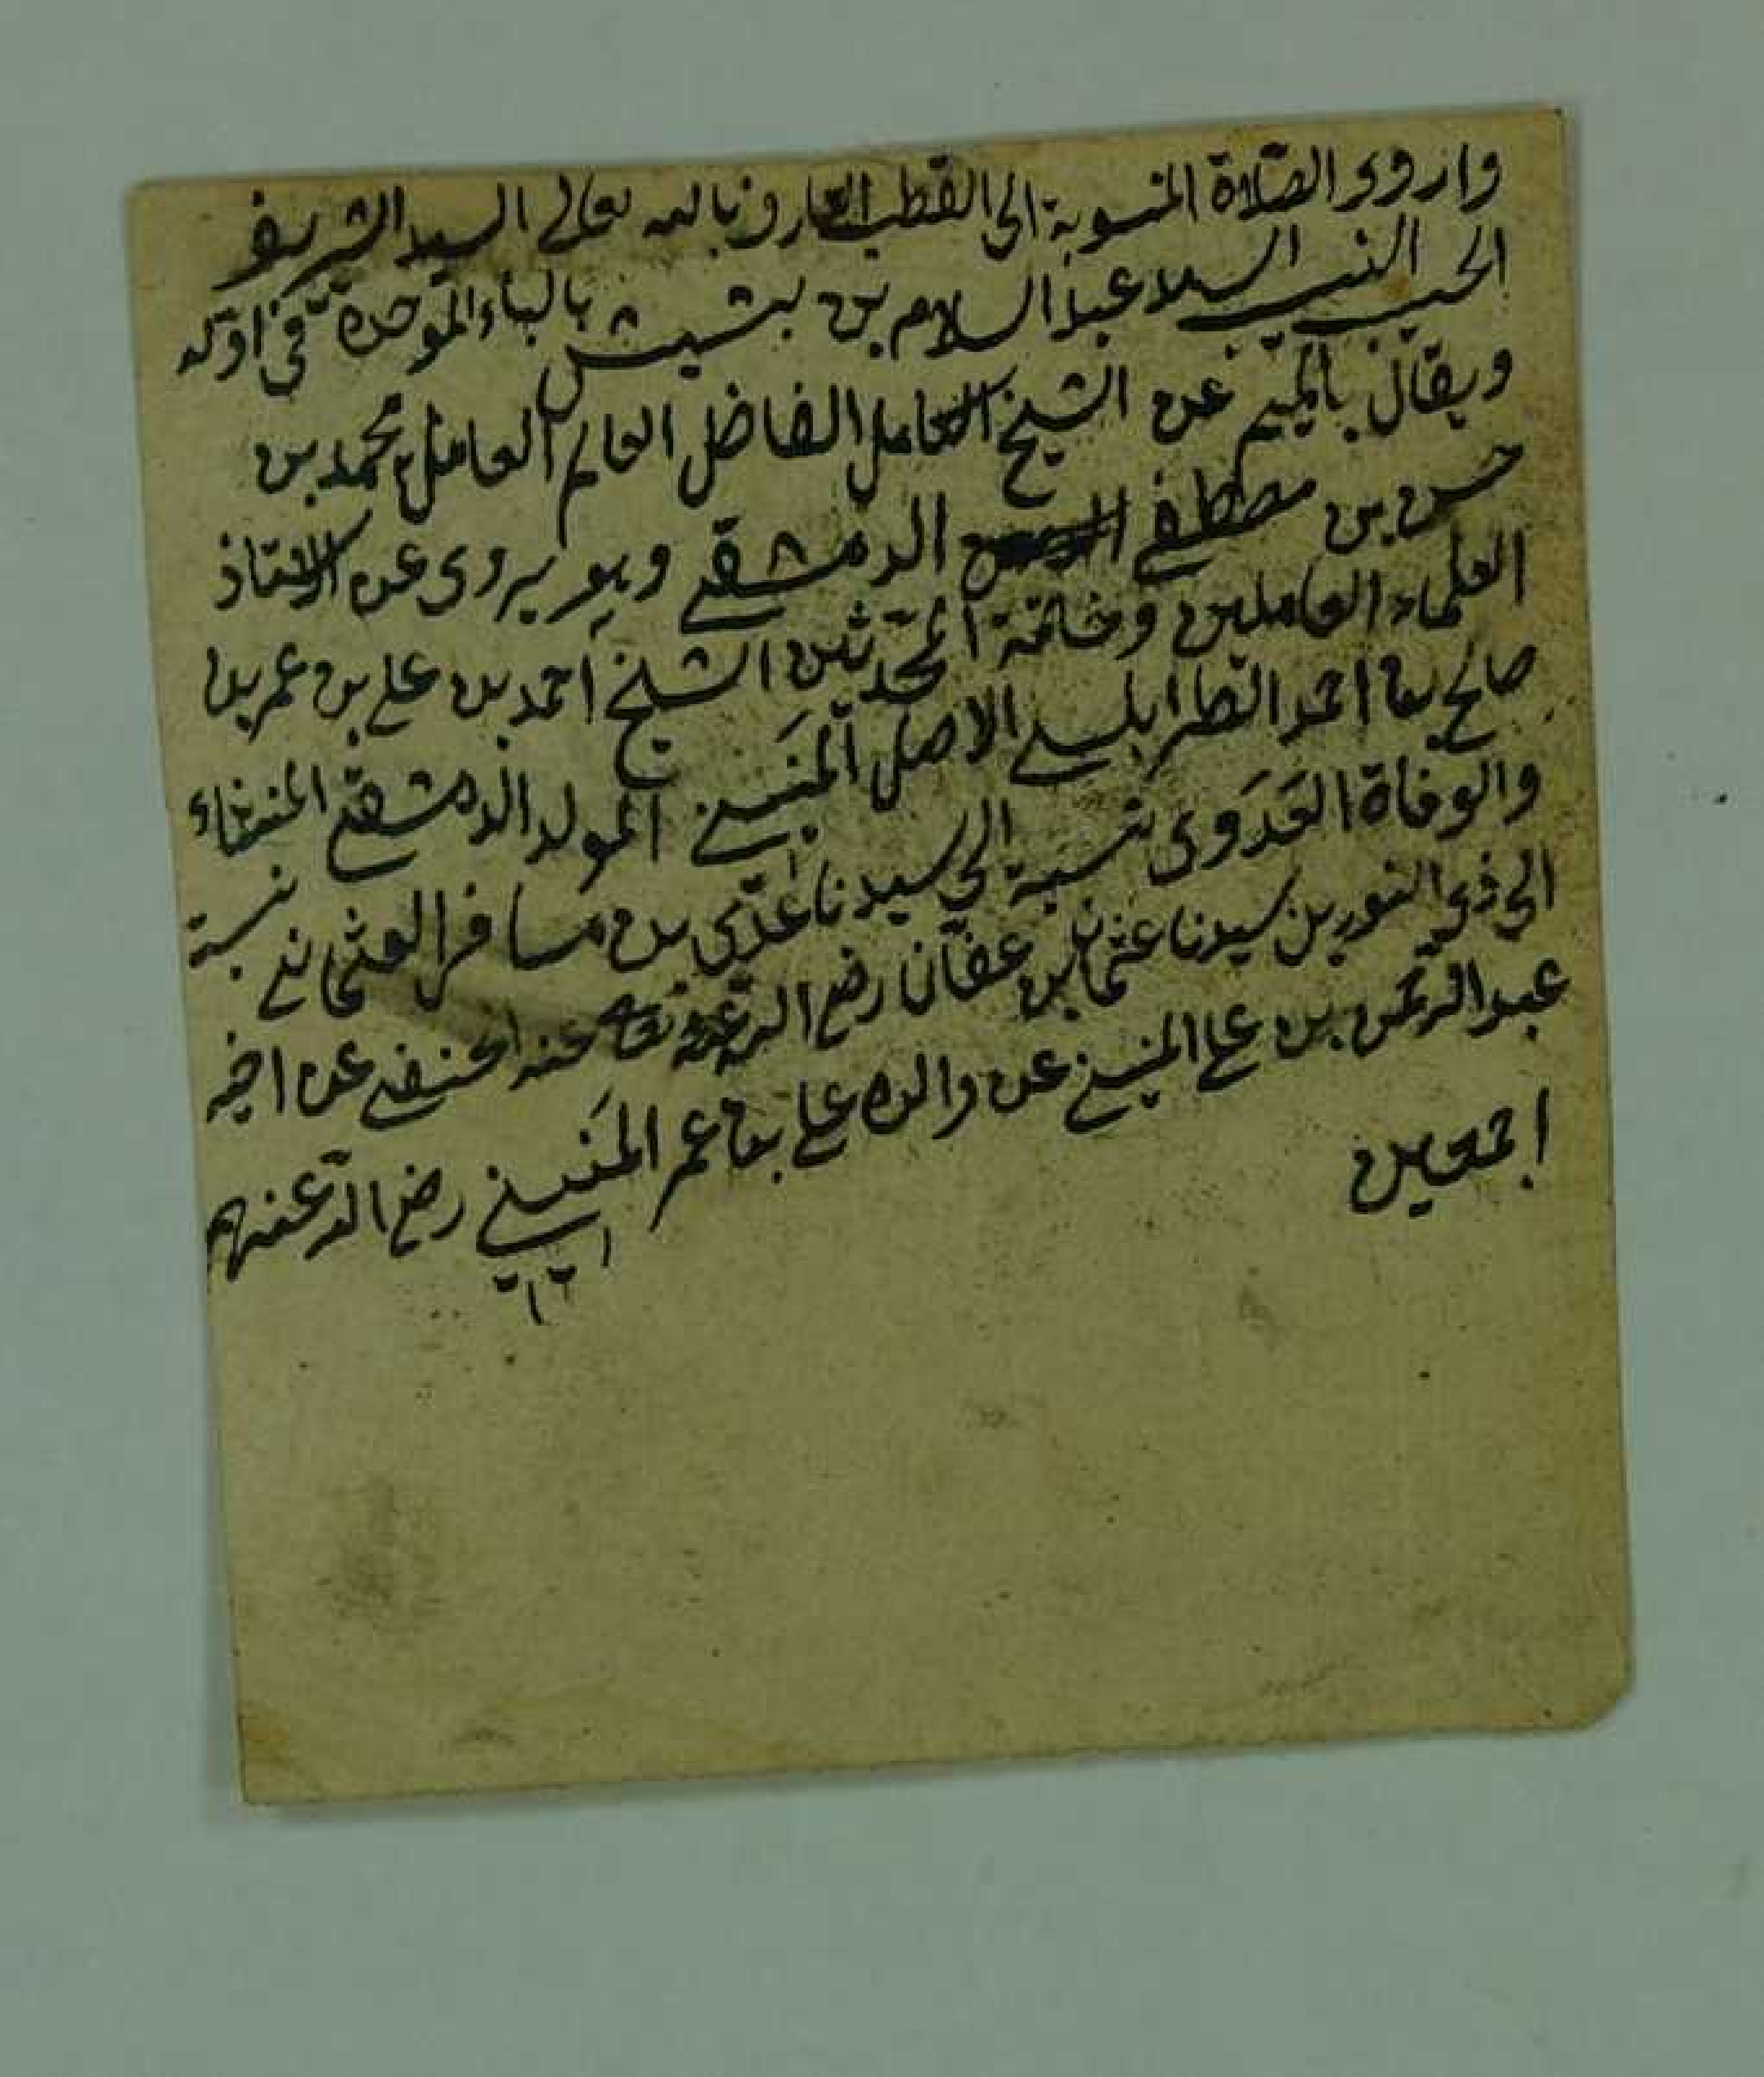 واروى الصلاة المنسوبة الى القطب العارف بالله تعالى السيد الشريف
الحسيب النسيب السيد عبد السلام بن بشيش بالباء الموحدة في اوله
ويقال بالميم عن الشيخ الكامل الفاضل العالم العامل محمد بن
حسن بن مصطفى الدمشقي وهو يروى عن الاستاذ
العلماء العاملين وخاتمة المحدثين الشيخ احمد بن علي بن عمر بن
صالح بن احمد الطرابلسي الاصل المَنيني المولد الدمشقي المنشاء
والوفاة العَدَوى نسبة الى سيدنا عَدّى بن مسافر العثماني نسبة
الى ذى النورين سيدنا عثمان بن عفان رضي الله عنه الحنفي عن اخيه
عبد الرحمن بن علي المنيني عن والده علي بن عمر المَنيني رضي الله عنهم
اجمعين